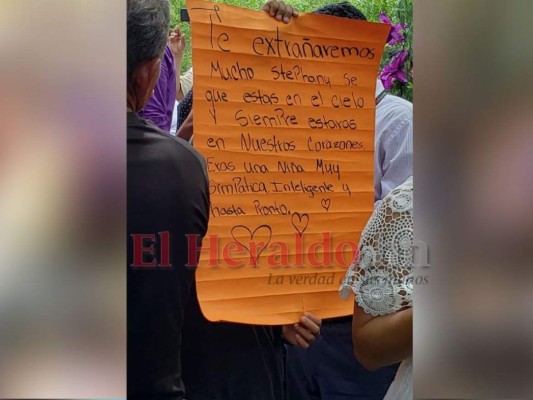 Te extrañaremos
Mucho Stephany Se
que estas en el cielo
y Siempre estaras
en Nuestros Corazones
Eras una Niña Muy
Simpatica Inteligente y
hasta Pronto.
El Heraldo.hn
La verdad en sus manos